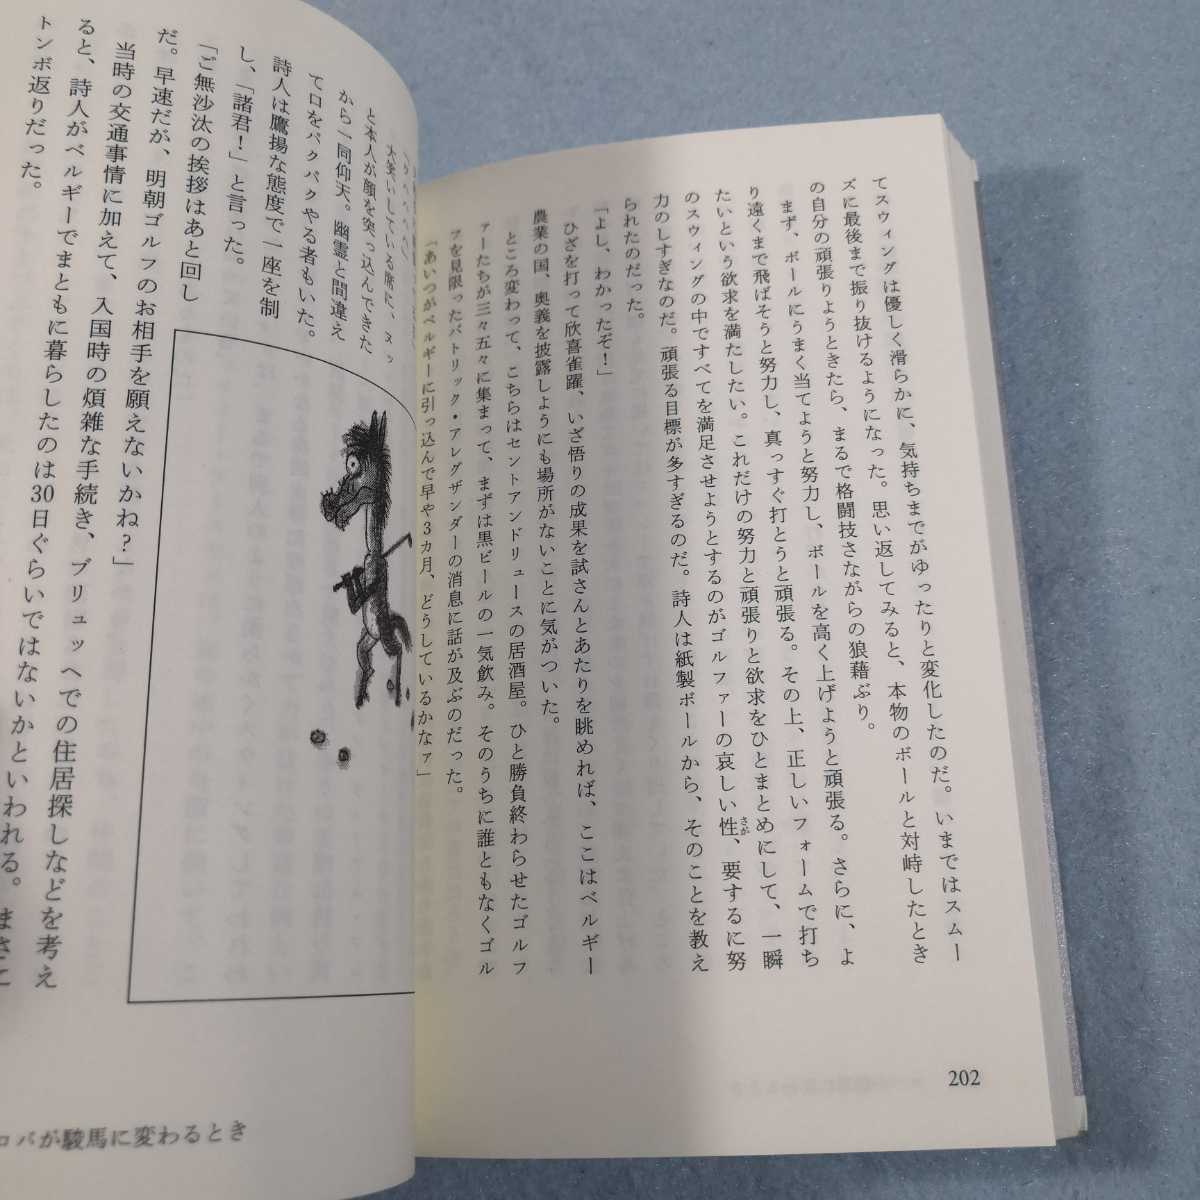 てスウィングは優しく滑らかに、気持ちまでがゆったりと変化したのだ。いまではスムー
ズに最後まで振り抜けるようになった。思い返してみると、本物のボールと対峙したとき
の自分の頑張りようときたら、まるで格闘技さながらの狼藉ぶり。
まず、ボールにうまく当てようと努力し、ボールを高く上げようと頑張る。さらに、よ
り遠くまで飛ばそうと努力し、真っすぐ打とうと頑張る。その上、正しいフォームで打ち
たいという欲求を満たしたい。これだけの努力と頑張りと欲求をひとまとめにして、一瞬
のスウィングの中ですべてを満足させようとするのがゴルファーの哀しい性、要するに努
さが
力のしすぎなのだ。頑張る目標が多すぎるのだ。詩人は紙製ボールから、そのことを教え
られたのだった。
「よし、わかったぞ！」
ひざを打って欣喜雀躍、いざ悟りの成果を試さんとあたりを眺めれば、ここはベルギー
農業の国、奥義を披露しようにも場所がないことに気がついた。
ところ変わって、こちらはセントアンドリュースの居酒屋。ひと勝負終わらせたゴルフ
ァーたちが三々五々に集まって、まずは黒ビールの一気飲み。そのうちに誰ともなくゴル
フを見限ったパトリック・アレグザンダーの消息に話が及ぶのだった。
「あいつがベルギーに引っ込んで早や3カ月、どうしているかなァ」
202
大笑いしている席に、ヌッ
と本人が顔を突っ込んできた
から一同仰天。幽霊と間違え
て口をパクパクやる者もいた。
詩人は鷹揚な態度で一座を制
し、「諸君！」と言った。
「ご無沙汰の挨拶はあと回し
だ。早速だが、明朝ゴルフのお相手を願えないかね？」
当時の交通事情に加えて、入国時の煩雑な手続き、ブリュッヘでの住居探しなどを考え
ると、詩人がベルギーでまともに暮らしたのは30日ぐらいではないかといわれる。まさに
トンボ返りだった。
ロバが駿馬に変わるとき